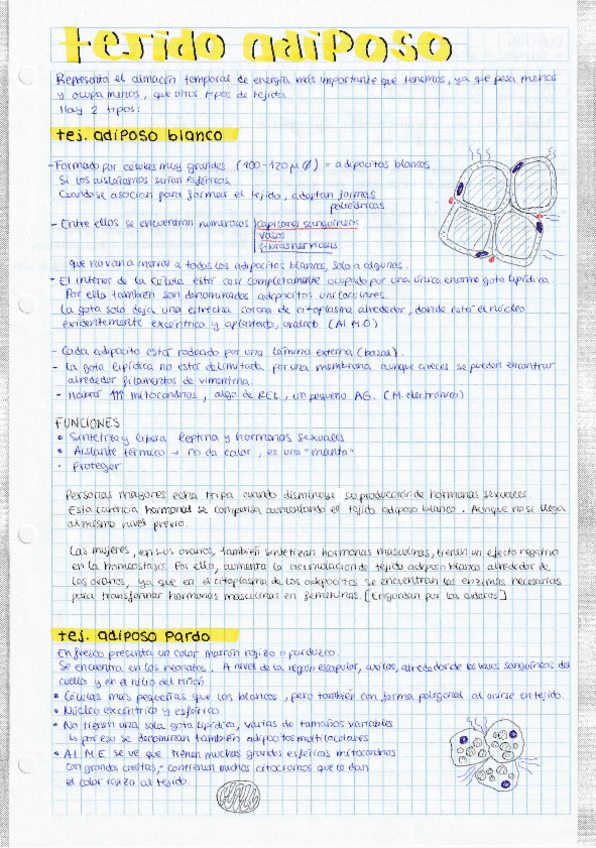 tejido adiposo
Representa el almacén temporal de energía más importante que tenemos, ya que pesa menos
y ocupa menos, que otros tipos de tejido.
Hay 2 tipos:
tej. adiposo blanco
- Formado por células muy grandes (100-120 µ Ø) = adipocitos blancos
Si los aisláramos serían esféricos.
Cuando se asocian para formar el tejido, adoptan formas
poliédricas
- Entre ellos se encuentran numerosos capilares sanguíneos
vasos
fibras nerviosas
que no van a inervar a todos los adipocitos blancos, solo a algunos.
- El interior de la célula está casi completamente ocupado por una única enorme gota lipídica.
Por ello también son denominados adipocitos uniloculares.
La gota solo deja una estrecha corona de citoplasma alrededor, donde está el núcleo
evidentemente excéntrico y aplastado, (Al M.O)
- Cada adipocito está rodeado por una lámina externa (basal).
- La gota lipídica no está delimitada por una membrana aunque a veces se pueden encontrar
alrededor filamentos de vimentina.
- Habrá ↑↑↑ mitocondrias, algo de REL, un pequeño AG. (M. electrónico)
FUNCIONES
• Sintetiza y libera leptina y hormonas sexuales
• Aislante térmico → no da calor, es una "manta"
• Proteger
Personas mayores echa tripa cuando disminuye su producción de hormonas sexuales.
Esta carencia hormonal se compensa aumentando el tejido adiposo blanco. Aunque no se llega
al mismo nivel previo.
Las mujeres, en sus ovarios, también sintetizan hormonas masculinas, tienen un efecto negativo
en la homeostasis. Por ello, aumenta la acumulación de tejido adiposo blanco alrededor de
los ovarios, ya que en el citoplasma de los adipocitos se encuentran las enzimas necesarias
para transformar hormonas masculinas en femeninas. [Engordan por las caderas]
tej. adiposo pardo
En fresco presenta un color marrón rojizo o parduzco.
Se encuentra en los neonatos. A nivel de la región escapular, axilas, alrededor de los vasos sanguíneos del
cuello y en el hilio del riñón
• Células más pequeñas que los blancos, pero también con forma poligonal al unirse en tejido.
• Núcleo excéntrico y esférico
• No tienen una sola gota lipídica, varias de tamaños variables
↳ por eso se denominan también adipocitos multiloculares
• Al M.E se ve que tienen muchas grandes esféricas mitocondrias
con grandes crestas, contienen muchos citocromos que le dan
el color rojizo al tejido.